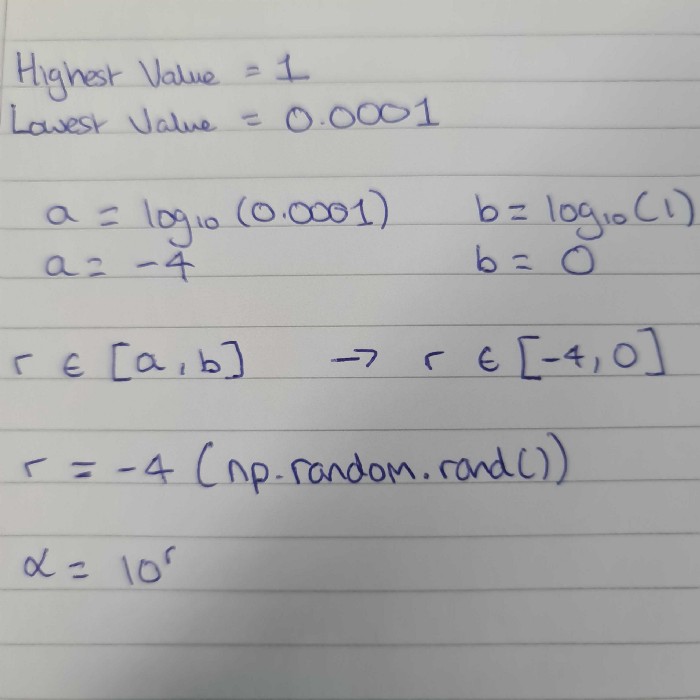 Highest Value = 1
Lowest Value = 0.0001
a = log₁₀ (0.0001) b = log₁₀ (1)
a = -4 b = 0
r ∈ [a, b] → r ∈ [-4, 0]
r = -4 (np.random.rand())
α = 10ʳ